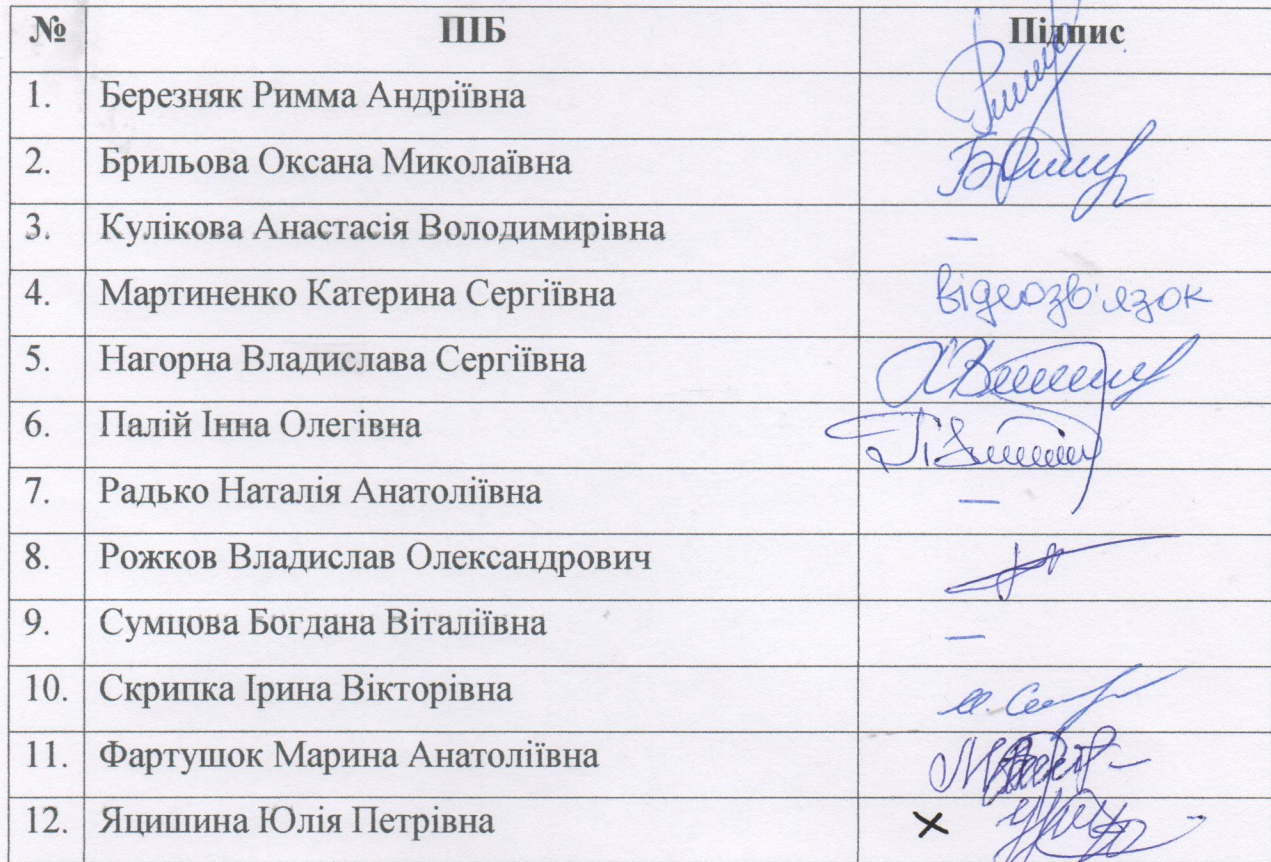 № ПІБ Підпис
1. Березняк Римма Андріївна
2. Брильова Оксана Миколаївна
3. Кулікова Анастасія Володимирівна –
4. Мартиненко Катерина Сергіївна відеозв'язок
5. Нагорна Владислава Сергіївна
6. Палій Інна Олегівна
7. Радько Наталія Анатоліївна –
8. Рожков Владислав Олександрович
9. Сумцова Богдана Віталіївна –
10. Скрипка Ірина Вікторівна
11. Фартушок Марина Анатоліївна
12. Яцишина Юлія Петрівна ×